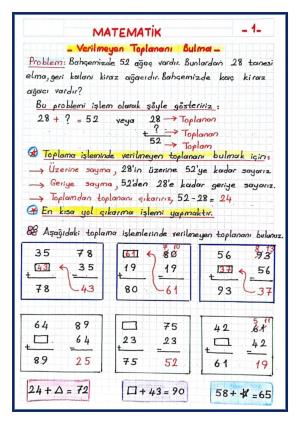 MATEMATİK
-1-
- Verilmeyen Toplananı Bulma -
Problem: Bahçemizde 52 ağaç vardır. Bunlardan 28 tanesi
elma, geri kalanı kiraz ağacıdır. Bahçemizde kaç kiraz
ağacı vardır?
Bu problemi işlem olarak şöyle gösteririz:
28 + ? = 52 veya 28 → Toplanan
+ ? → Toplanan
52 → Toplam
Toplama işleminde verilmeyen toplananı bulmak için:
→ Üzerine sayma, 28'in üzerine 52'ye kadar sayarız.
→ Geriye sayma, 52'den 28'e kadar geriye sayarız.
→ Toplamdan toplananı çıkarırız, 52-28 = 24
En kısa yol çıkarma işlemi yapmaktır.
Aşağıdaki toplama işlemlerinde verilmeyen toplananı bulunuz.
35 78 61 80 56 93
+ 43 - 35 + 19 - 19 + 37 - 56
78 43 80 61 93 37
64 89 □ 75 42 61
+ □ - 64 + 23 - 23 + □ - 42
89 25 75 52 61 19
24 + △ = 72
□ + 43 = 90
58 + ☆ = 65